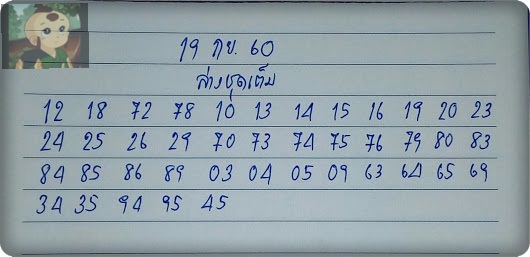 19 กย. 60
ล่างชุดเต็ม
12 18 72 78 10 13 14 15 16 19 20 23
24 25 26 29 70 73 74 75 76 79 80 83
84 85 86 89 03 04 05 09 63 64 65 69
34 35 94 95 45